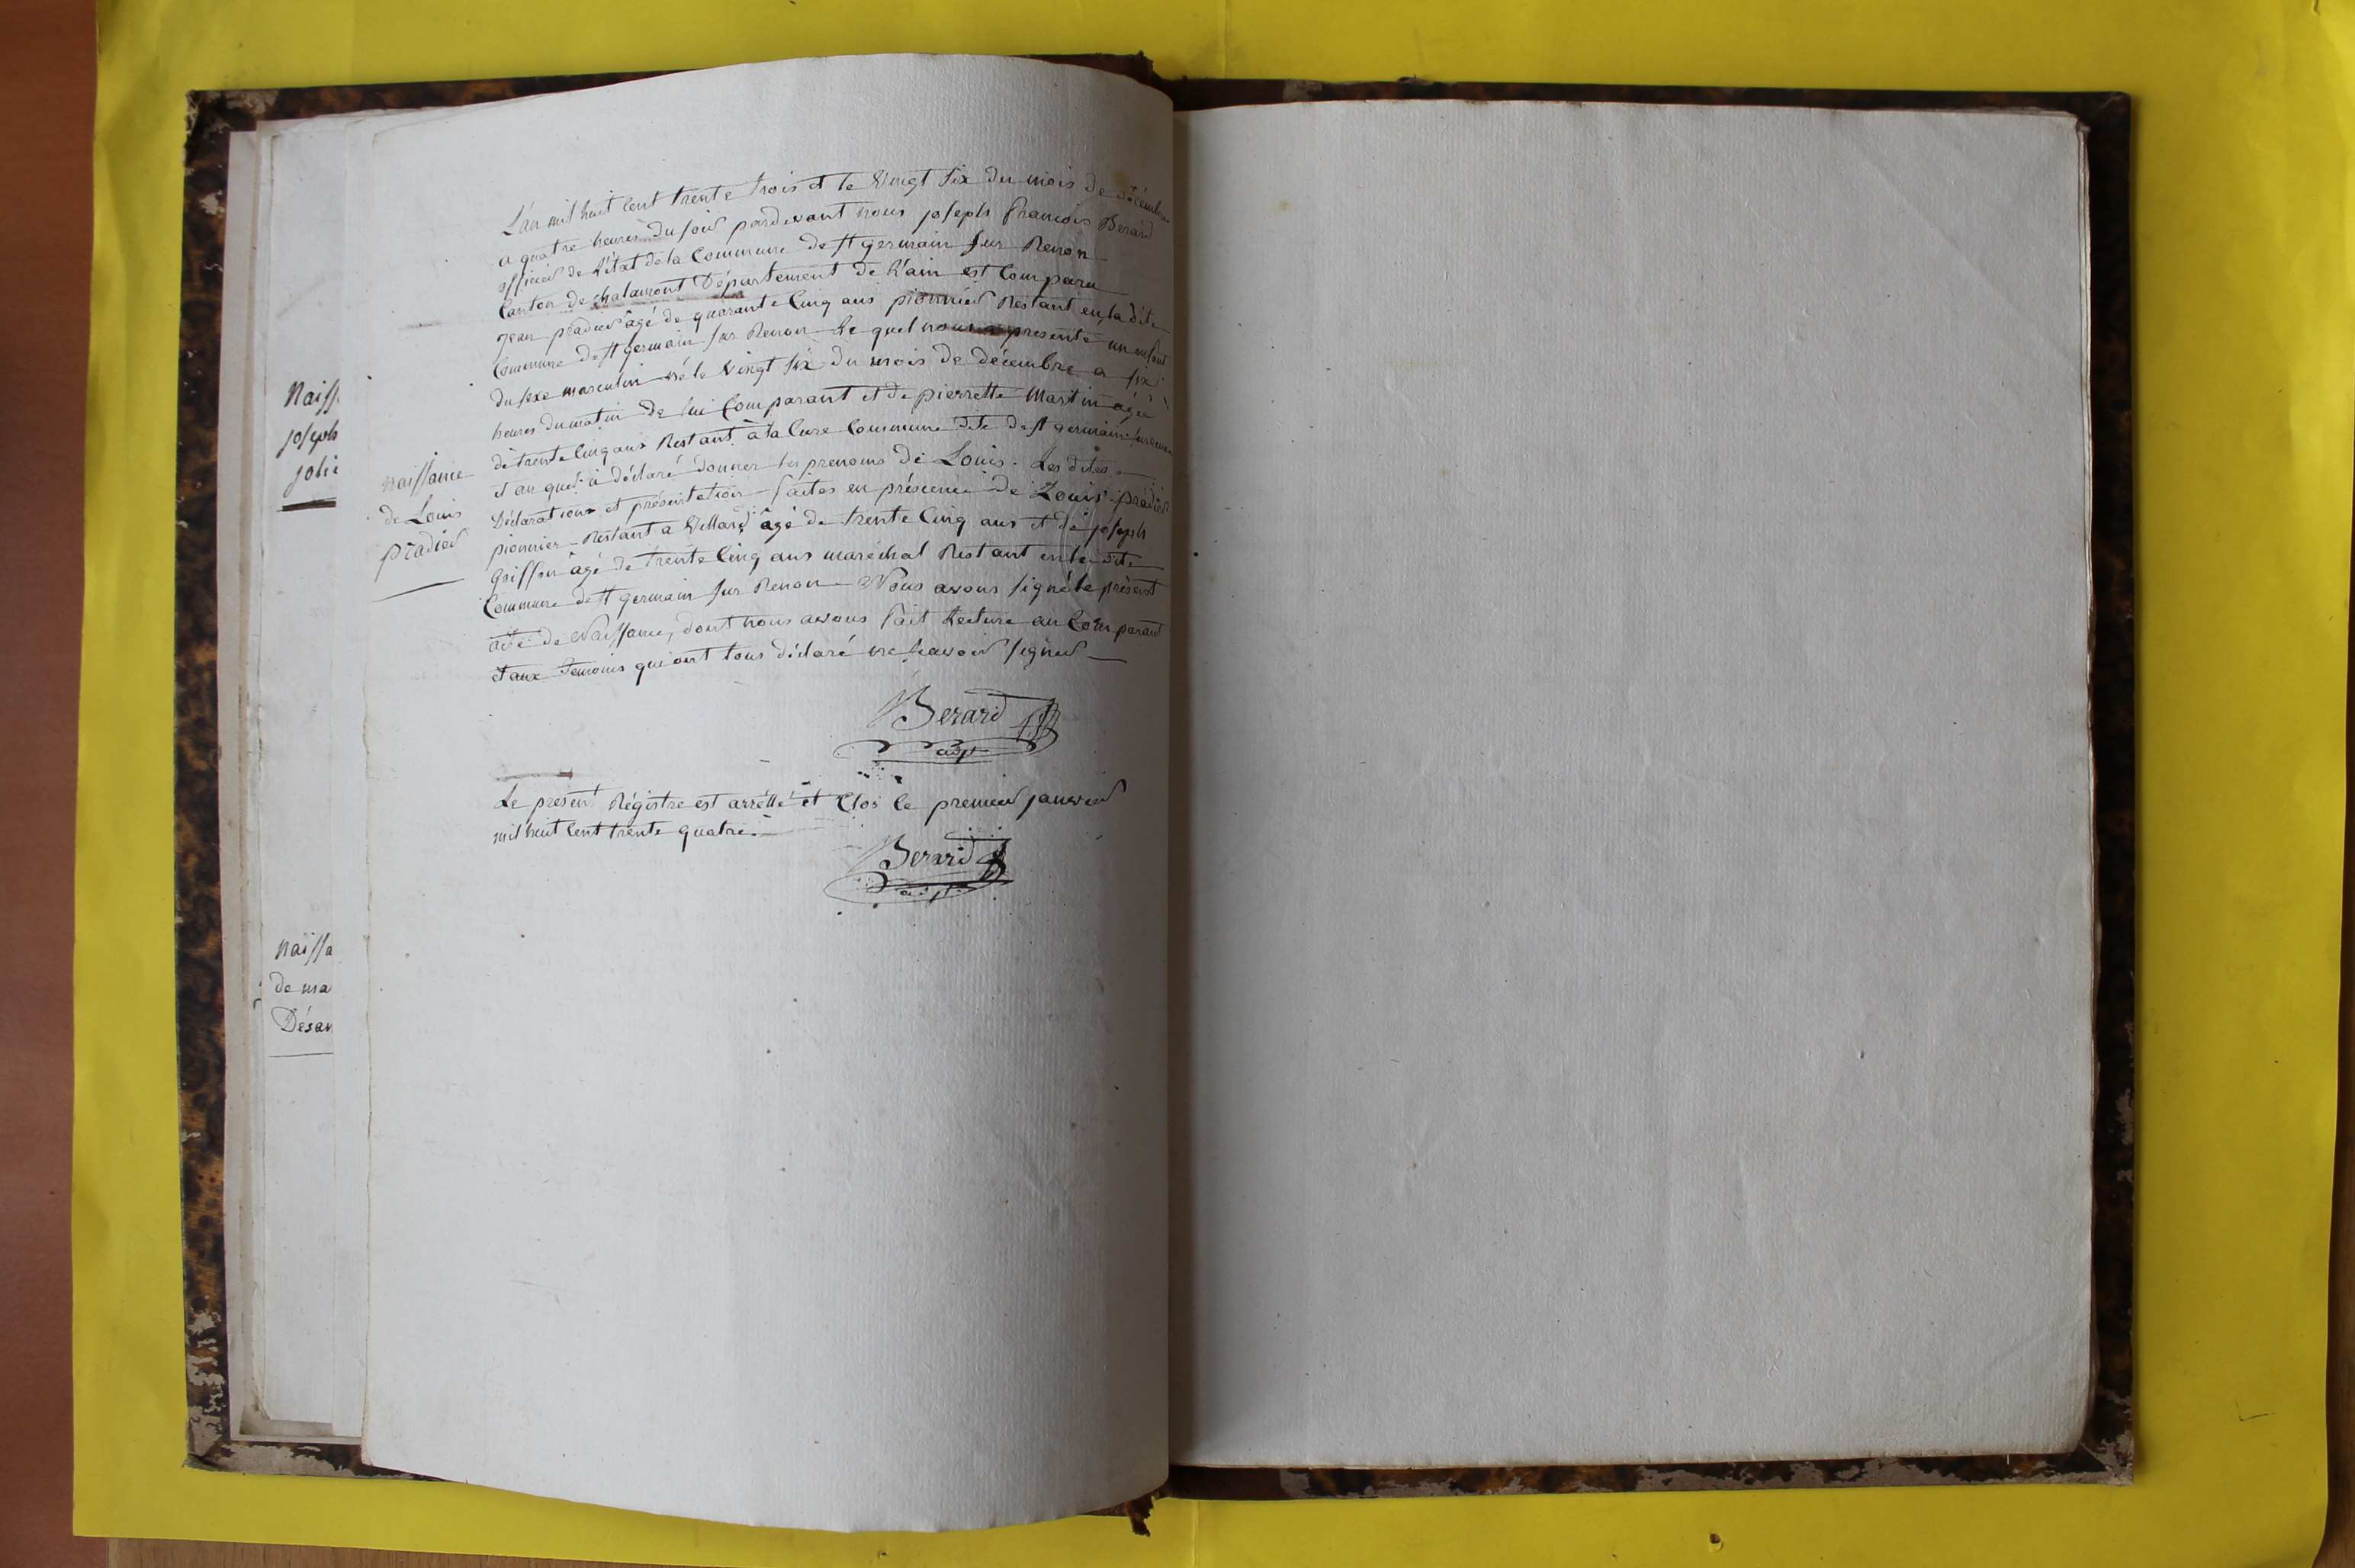 Naiss
joseph
jolie
Naissa
de ma
Désar
naissance
de Louis
pradier
L'an mil huit cent trente trois et le vingt six du mois de décembre
a quatre heures du soir pardevant nous joseph francois Berard
officier de l'état de la Commune de st germain sur Renon
Canton de chalamont Département de l'ain est Comparu
jean pradier âgé de quarante cinq ans pionnier Restant en la dite
Commune de st germain sur Renon le quel nous a presenté un enfant
du sexe masculin né le vingt six du mois de décembre a six
heures du matin de lui Comparant et de pierrette Martin agée
de trente cinq ans Restant à la Cure Commune dite de st germain sur renon
et au quel a déclaré donner les prenoms de Louis. Les dites
Déclarations et présentation faites en présence de Louis pradier
pionnier Restant a Villard âgé de trente cinq ans et de joseph
Griffon âgé de trente cinq ans maréchal Restant en la dite
Commune de st germain sur Renon Nous avons signé le présent
acte de Naissance, dont nous avons fait Lecture au Comparant
et aux Temoins qui ont tous déclaré ne savoir signer
Berard
adjt
Le présent Régistre est arrêtté et Clos le premier janvier
mil huit cent trente quatre.
Berard
adjt